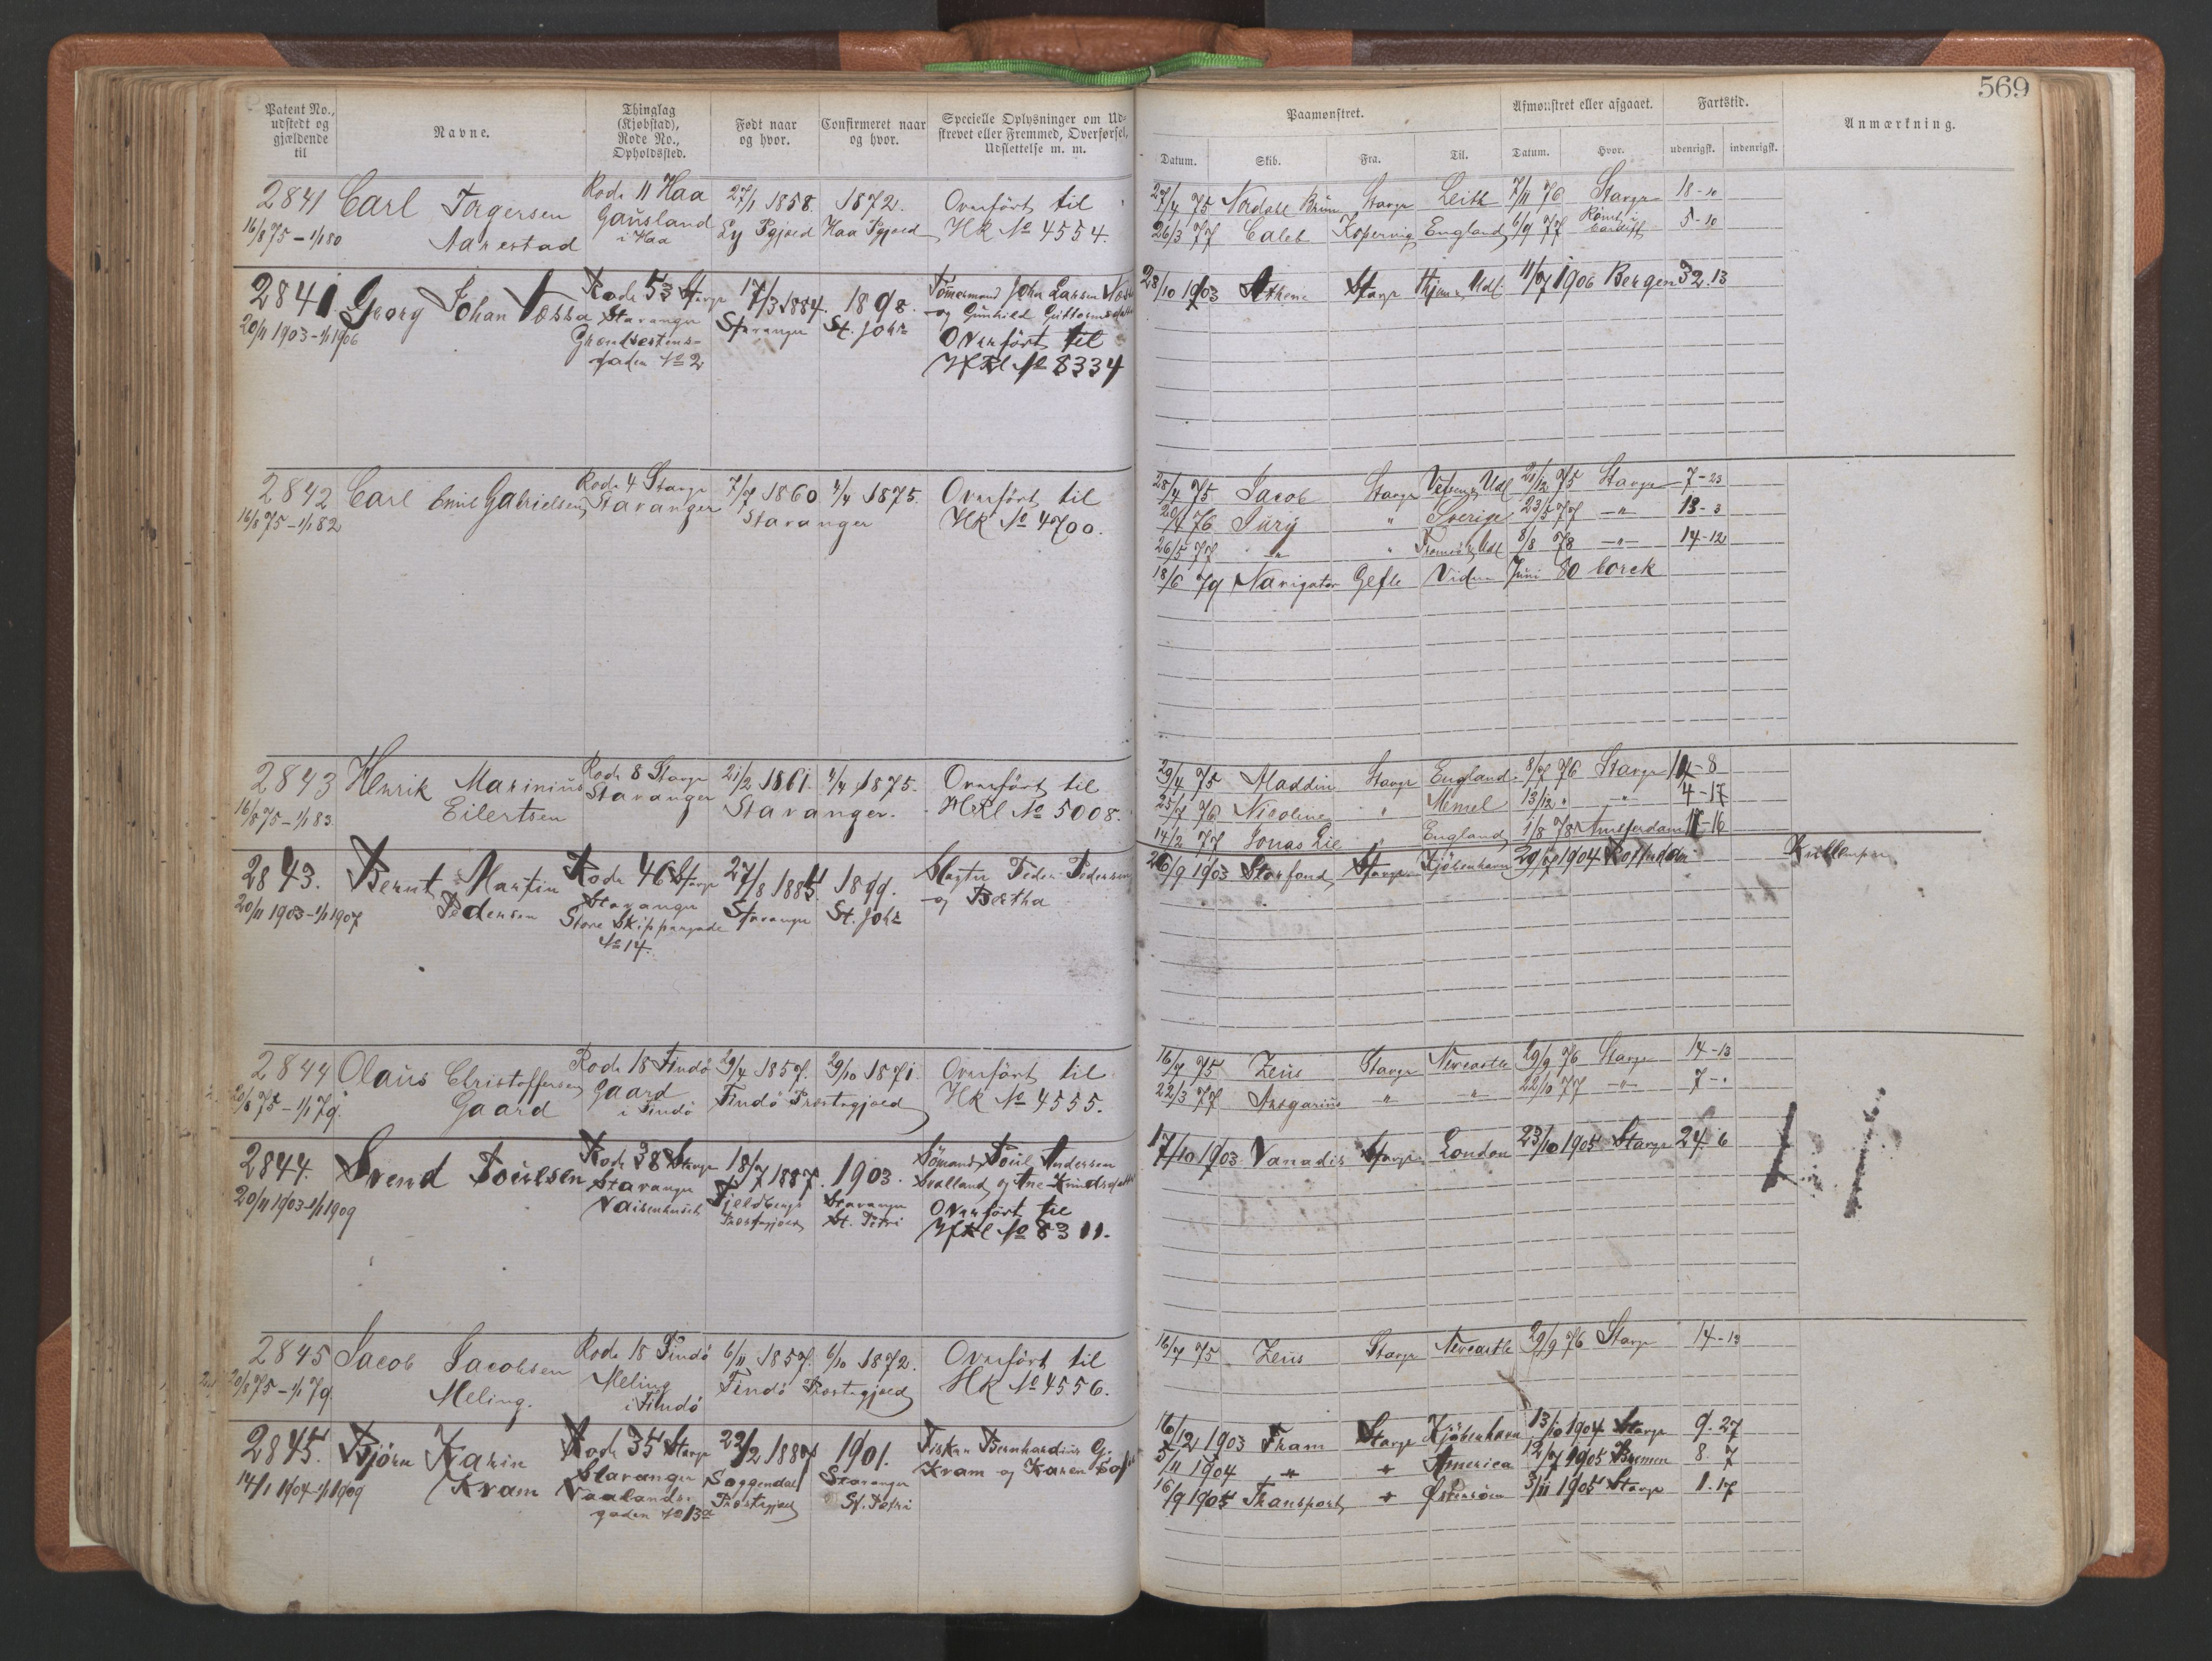 569
Patent No., udstedt og gjældende til
Navne.
Thinglag (Kjøbstad), Rode No., Opholdssted.
Født naar og hvor.
Confirmeret naar og hvor.
Specielle Oplysninger om Udstrevet eller Fremmed, Overførsel, Udslettelse m. m.
Paamønstret.
Afmønstret eller afgaaet.
Fartstid.
Anmærkning.
Datum.
Skib.
Fra.
Til.
Datum.
Hvor.
udenrigsk.
indenrigsk.
2841 Carl Torgersen Rode 11 Haa 27/1 1858. 1872. Overført til
16/8 75 - 1/1 80 Aarestad Gausland i Haa Ly Pgjæld Haa Pgjæld HR No 4554.
27/4 75 Nordahl Brun Stavgr Leith 7/11 76 Stavgr 18-10
26/3 77 Caleb Kopervig England 6/9 77 Rømt i Cardiff 5-10
2841 Georg Johan Næssa Rode 53 Stavgr 17/3 1884. 1898. Tømmermand John Larsen
20/11 1903 - 1/1 1906 Stavanger Stavanger St. Johs og Gunhild
gaden No 2 Overført til
HRl No 8334
28/10 1903 Athene Stavgr Hjem & Udl. 11/7 1906 Bergen 32.13
2842 Carl Emil Gabrielsen Rode 4 Stavgr 7/7 1860 4/4 1875. Overført til
16/8 75 - 1/1 82 Stavanger Stavanger HR No 4700.
28/4 75 Jacob Stavgr Udl 21/12 75 Stavgr 7-23
20/4 76 Jury " Sverige 23/5 77 -"- 13-3
26/5 77 " " Udl 8/8 78 -"- 14-12
18/6 79 Navigator Gefle Juni 80
2843 Henrik Marinius Rode 8 Stavgr 21/2 1861. 4/4 1875. Overført til
16/8 75 - 1/1 83. Eilertsen Stavanger Stavanger. HRl No 5008.
29/4 75 Aladdin Stavgr England 8/7 76 Stavgr 14-8
25/7 76 Nicoline " Memel 13/12 " -"- 4-17
14/2 77 Jonas Lie " England 1/8 78 Amsterdam 17-16
2843. Bernt Martin Rode 46 Stavgr 27/8 1885. 1899. Slagter Peder Pedersen
20/11 1903 - 1/1 1907 Pedersen Stavanger Stavanger St. Johs og Bertha
Store Skippergade
No 14.
26/9 1903 Storfond Stavgr Kjøbenhavn 29/7 1904 Rotterdam
2844 Olaus Christoffersen Rode 18 Findø 29/4 1857. 29/10 1871. Overført til
20/8 75 - 1/1 79. Gaard Gaard i Findø Findø Præstegjæld HR No 4555.
16/7 75 Zeus Stavgr Newcastle 29/9 76 Stavgr 14-13
22/3 77 Ansgarius " -"- 22/10 77 -"- 7-"
2844. Svend Poulsen Rode 38 Stavgr 18/7 1887. 1903. Sømand Poul Andersen
20/11 1903 - 1/1 1909 Stavanger Fjeldbergs Stavanger og Ane
Vaisenhuset Præstegjæld St. Petri Overført til
HRl No 8311.
17/10 1903 Vanadis Stavgr London 23/10 1905 Stavgr 24.6
2845 Jacob Jacobsen Rode 18 Findø 6/11 1857. 6/10 1872. Overført til
20/8 75 - 1/1 79 Meling. Meling i Findø Findø Præstegjæld HR No 4556.
16/7 75 Zeus Stavgr Newcastle 29/9 76 Stavgr 14-13
2845. Bjørn Karin Rode 35 Stavgr 22/2 1887 1901. Fisker Bernhardius G.
14/1 1904 - 1/1 1909 Kvam Stavanger Soggendal Stavanger Kvam og Karen
Vaalands- Præstegjæld St. Petri
gaden No 13a
16/12 1903 Fram Stavgr Kjøbenhavn 13/10 1904 Stavgr 9.27
5/11 1904 " " America 12/7 1905 Bremen 8.7
16/9 1905 Transport " Østersøen 3/11 1905 Stavgr 1.17